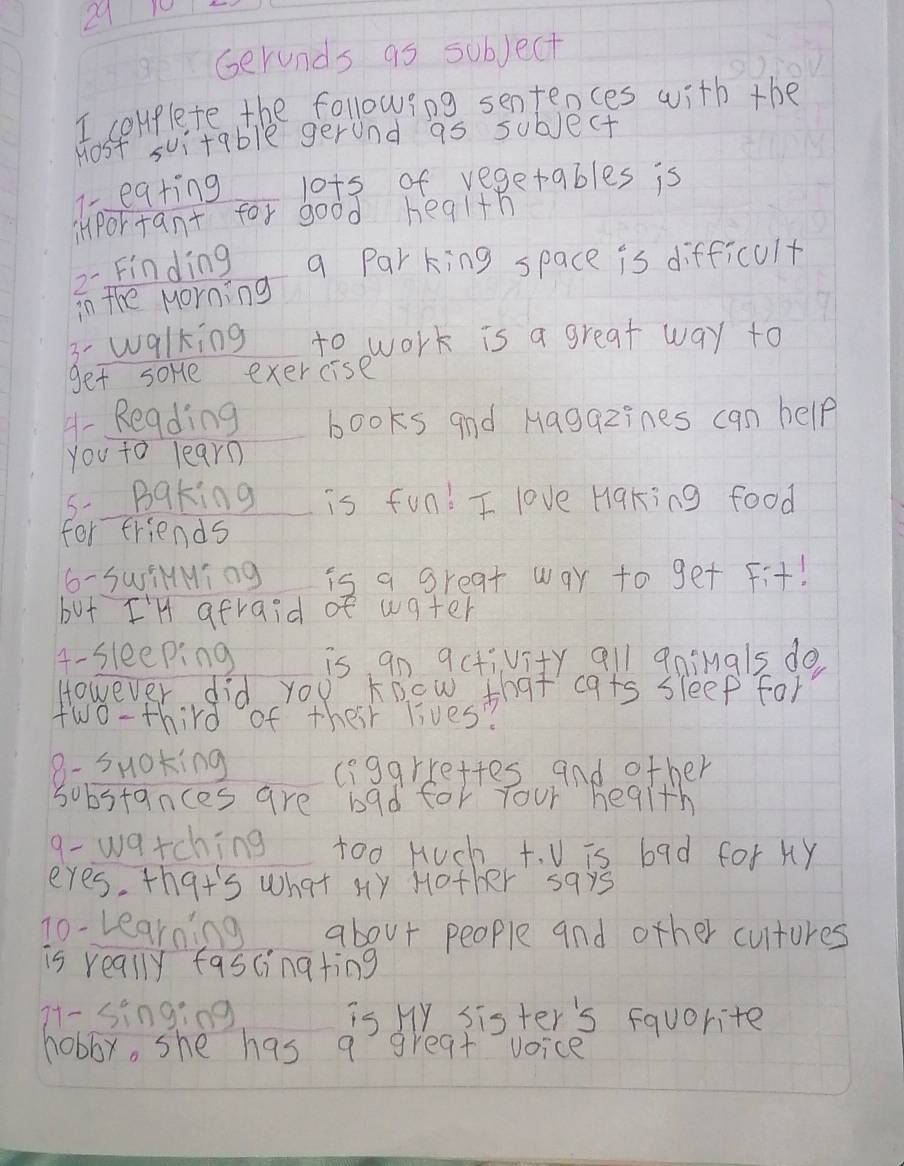 29 10
Gerunds as subject
I complete the following sentences with the
most suitable gerund as subject
1- eating lots of vegetables is
important for good health
2- Finding a parking space is difficult
in the morning
3- walking to work is a great way to
get some exercise
4- Reading books and magazines can help
you to learn
5- Baking is fun! I love making food
for friends
6- swimming is a great way to get Fit!
but I'm afraid of water
7- sleeping is an activity all animals do,
However did you know that cats sleep for
two-third of their lives?
8- smoking ciggarrettes and other
substances are bad for your health
9- watching too much t.v is bad for my
eyes. that's what my mother says
10- Learning about people and other cultures
is really fascinating
11- singing is my sister's favorite
hobby. she has a great voice